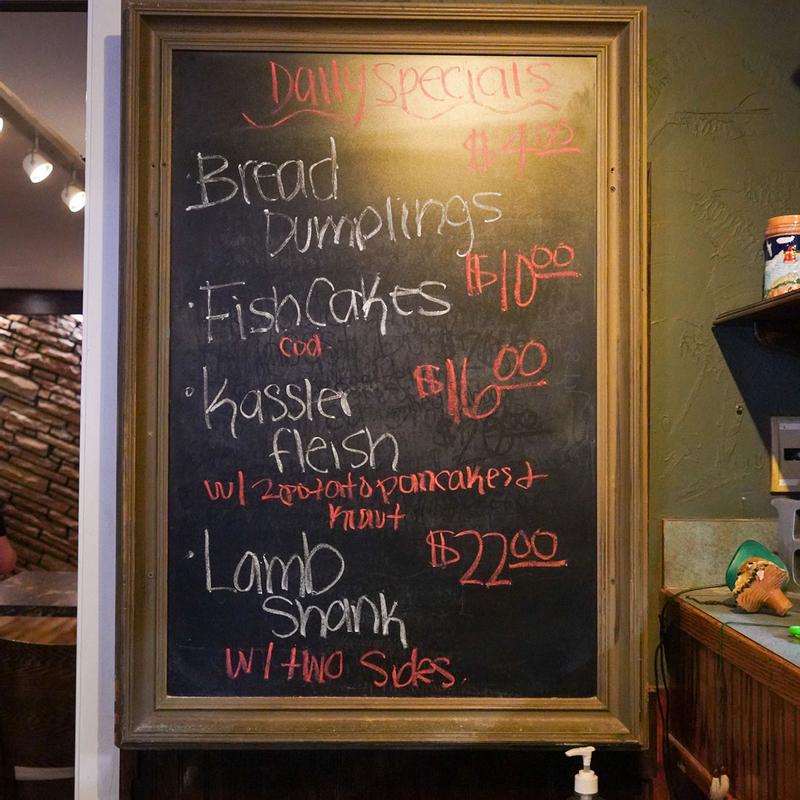 Daily Specials
$4.00
Bread
Dumplings
$10.00
Fish Cakes
Cod
$16.00
Kassler
fleish
w/ 2 potato pancakes +
Kraut
$22.00
Lamb
Shank
w/ two Sides.